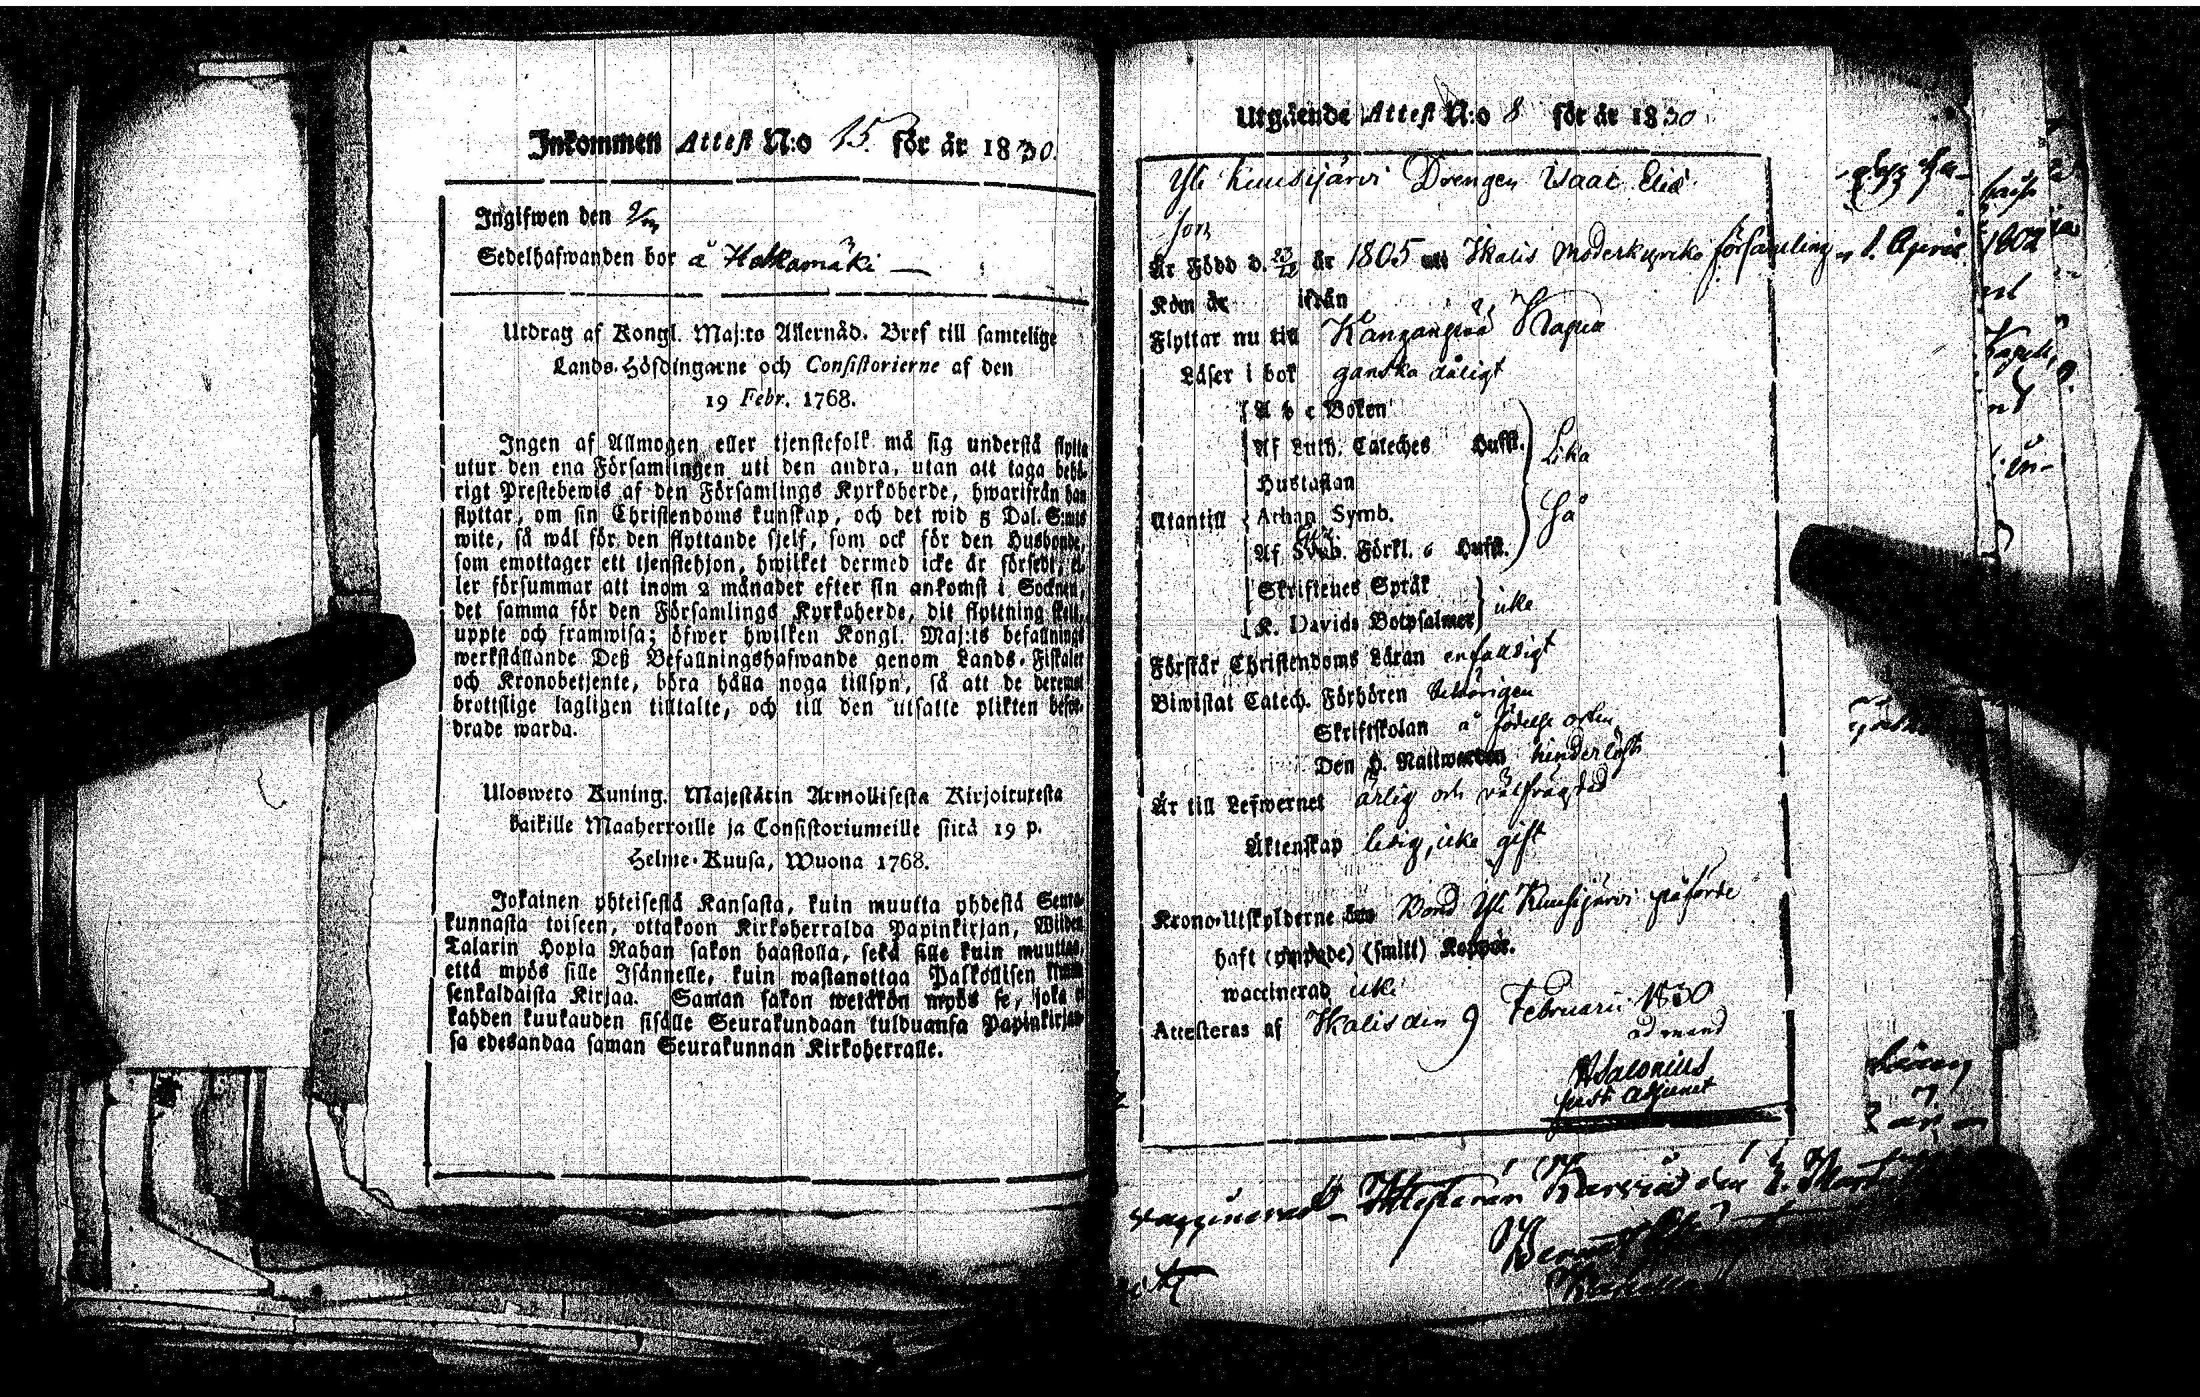 Inkommen Attest N:o 15. för år 1830.
Ingifwen den
Sedelhafwanden bor å Hakkamäki
Utdrag af Kongl. Maj:ts Allernåd. Bref till samtelige
Lands-Höfdingarne och Consistorierne af den
19 Febr. 1768.
Ingen af Allmogen eller tjenstefolk må sig understå flytta
utur den ena Församlingen uti den andra, utan att taga behö-
rigt Prestebewis af den Församlings Kyrkoherde, hwarifrån han
flyttar, om sin Christendoms kunskap, och det wid 5 Dal. S:mts
wite, så wäl för den flyttande sjelf, som ock för den Husbonde,
som emottager ett tjenstehjon, hwilket dermed icke är försedt, el-
ler försummar att inom 2 månader efter sin ankomst i Socknen,
det samma för den Församlings Kyrkoherde, dit flyttning skett,
uppte och framwisa; öfwer hwilken Kongl. Maj:ts befallnings
werkställande Deß Befallningshafwande genom Lands-Fiskaler
och Kronobetjente, böra hålla noga tillsyn, så att de deremot
brottslige lagligen tilltalte, och till den utsatte plikten befor-
drade warda.
Ulosweto Kuning. Majestätin Armollisesta Kirjoituxesta
kaikille Maaherroille ja Consistoriumeille siitä 19 p.
Helme-Kuusa, Wuona 1768.
Jokainen yhteisestä Kansasta, kuin muutta yhdestä Seura-
kunnasta toiseen, ottakoon Kirkoherralda Papinkirjan, Wiiden
Talarin Hopia Rahan sakon haastolla, sekä sille kuin muuttaa,
että myös sille Isännelle, kuin wastanottaa Palkollisen ilman
senkaldaista Kirjaa. Saman sakon wetäkön myös se, joka ei
kahden kuukauden sisälle Seurakundaan tulduansa Papinkirjan-
sa edesandaa saman Seurakunnan Kirkoherralle.
Utgående Attest N:o 8 för år 1830.
Yli Kuusijärvi Drengen Isaac Elia
son
Är Född d. 23/12 år 1805 uti Ikalis Moderkyrko församling
Kom år ifrån
Flyttar nu till Kangasniemi
Läser i bok ganska dåligt
A b c Boken
Af Luth. Cateches Hufst.
Lika
Hustaflan
Utantill Athan. Symb.
Så
Af Förkl. Hufst.
Skriftenes Språk
K. Davids Botpsalmer icke
Förstår Christendoms Läran enfaldigt
Biwistat Catech. Förhören behörigen
Skriftskolan å födelse orten
Den H. Nattwarden hinderlöst
Är till Lefwernet ärlig och välfrägdad
Äktenskap ledig, icke gift
Krono-Utskylderne Bond Yli Kuusijärvi påförde
haft (ympade) (smitt) Koppor.
waccinerad icke
Attesteras af Ikalis den 9 Februarii 1830
ad mand
A Salonius
past. adjunct
1. April 1802